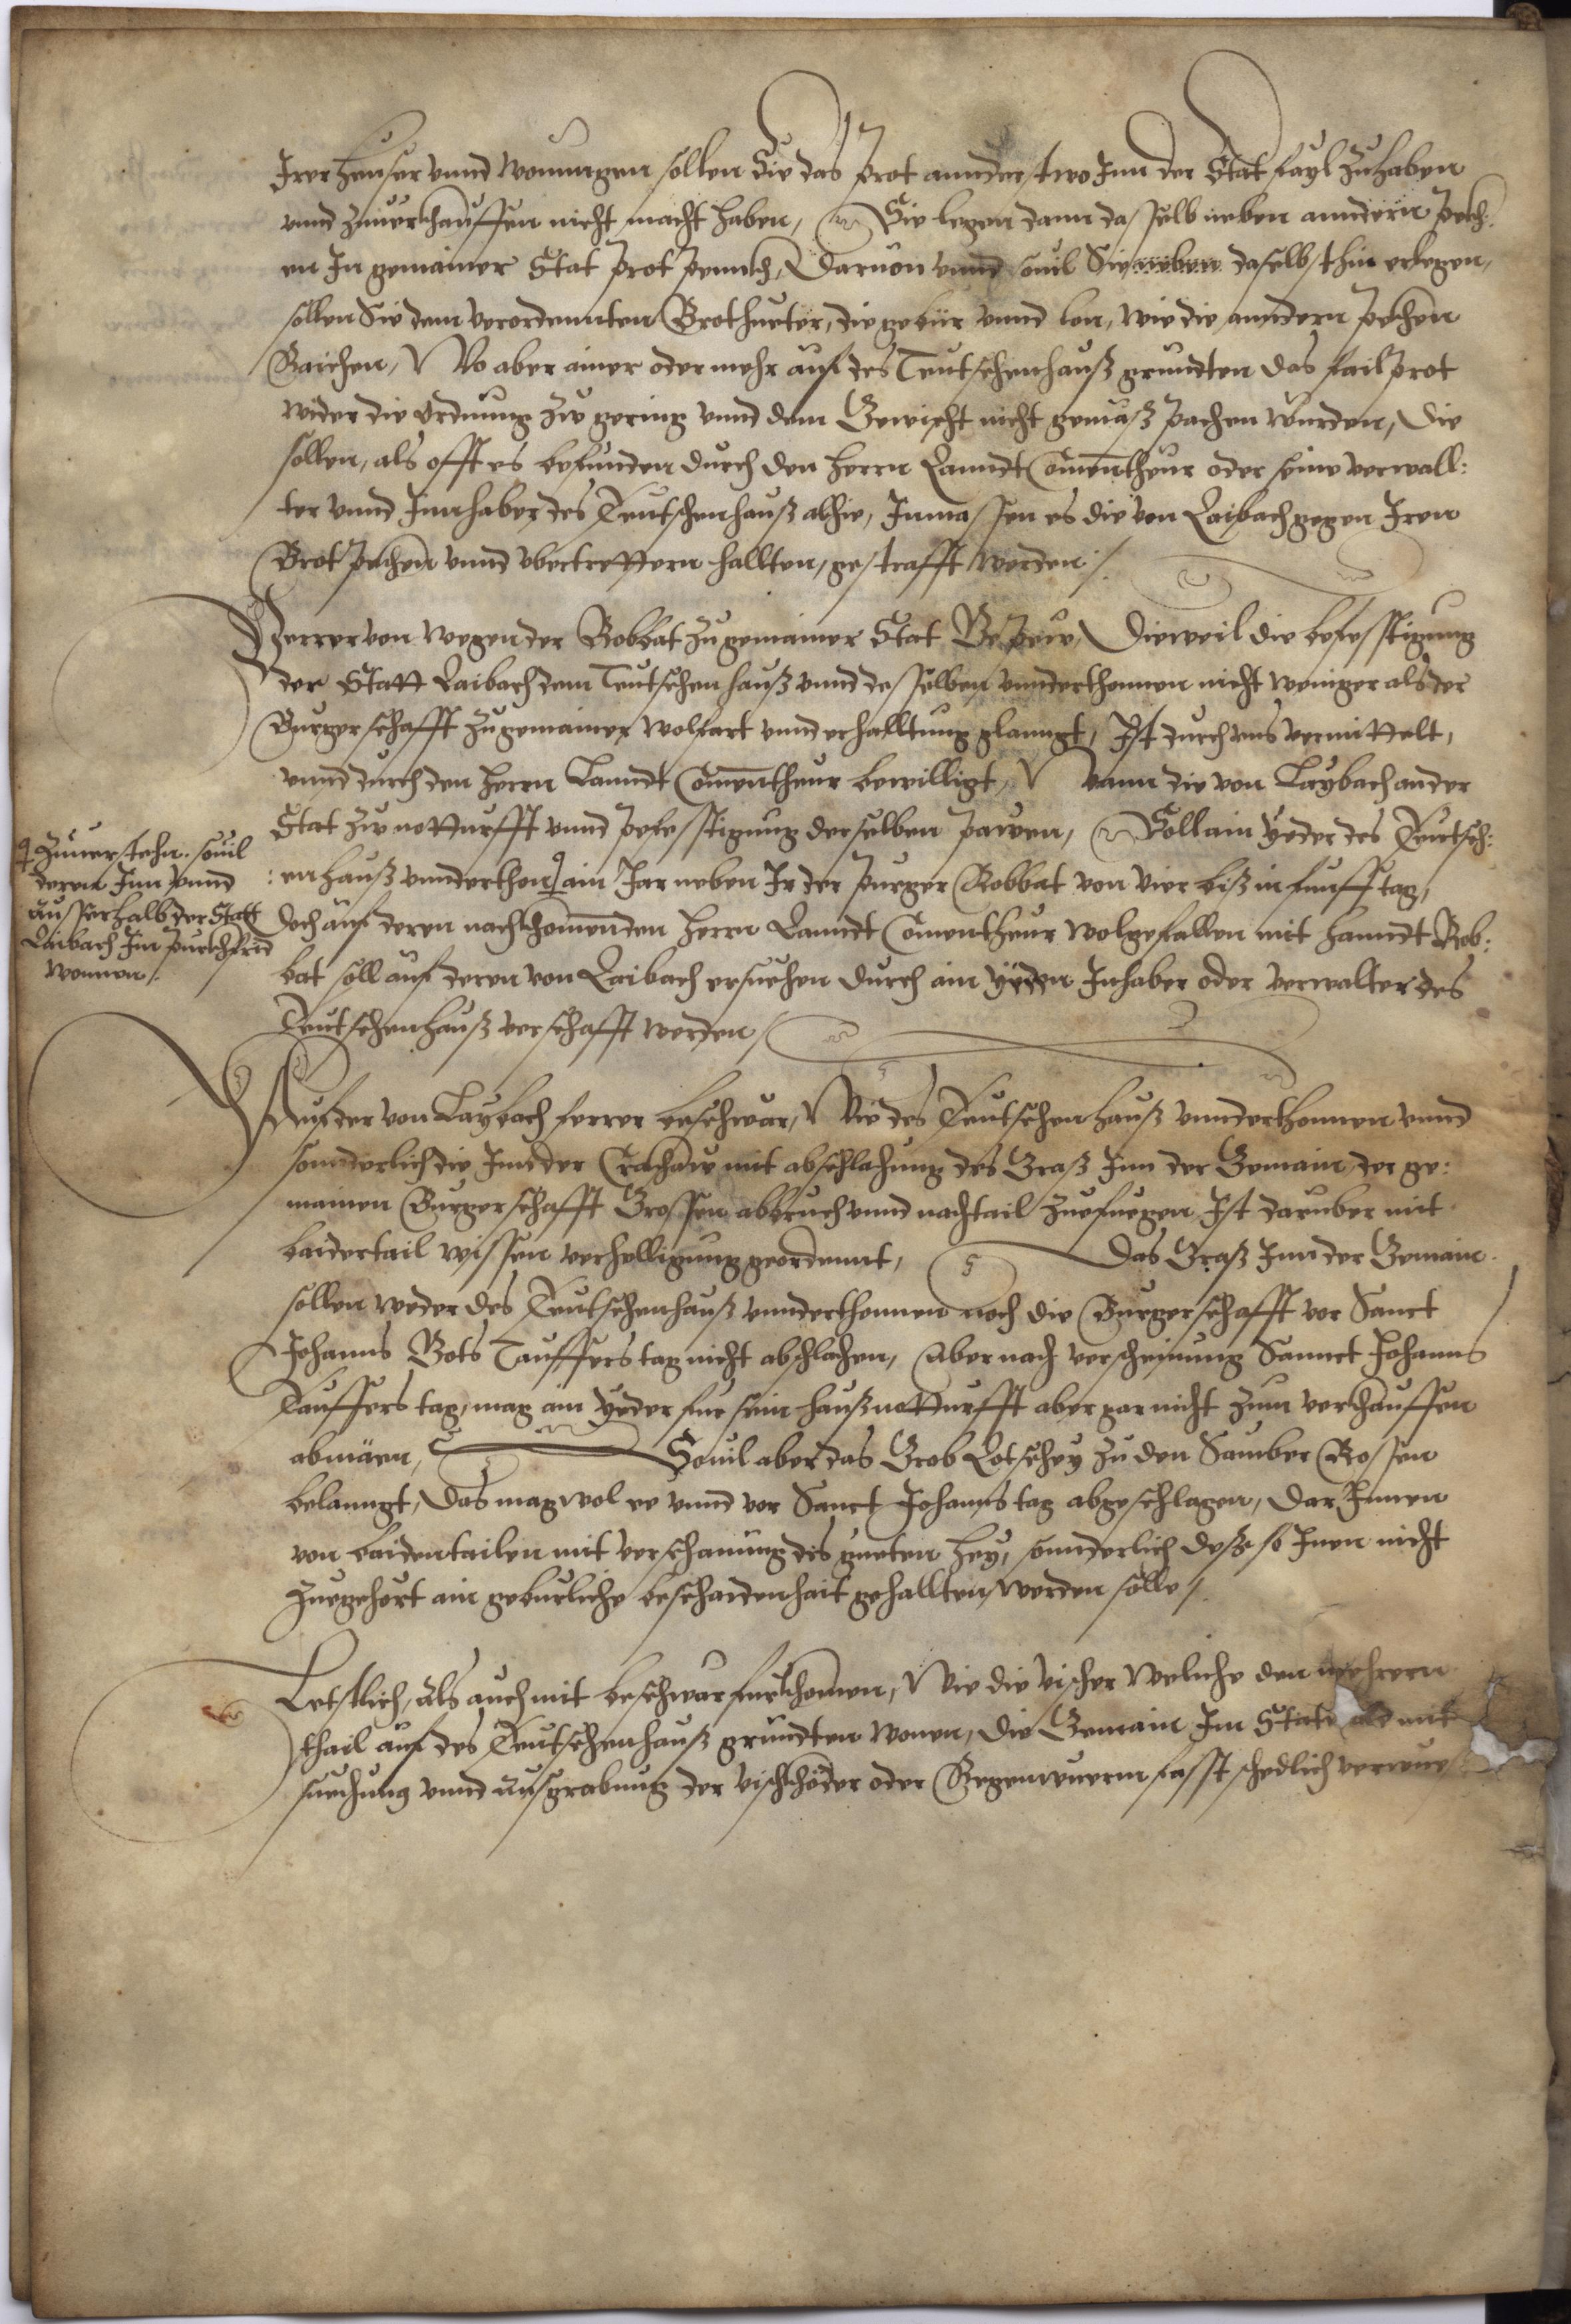 Irer heuser vnnd wonungen sollen Sie das prot annderstwo Inn der Stat fayl zuhaben
vnnd zuuerkhauffen nicht macht haben, Sie legen dann dasselb neben anndern pekh:
en In gemainer Stat prot pennkh, Daruon vnnd souil Sie neben daselbsthin erlegen,
sollen Sie dem verordennten Brothueter, die gebür vnnd lon, wie die anndern pekhen
Raichen, Wo aber ainer oder mehr auf des Teutschenhauß grundten das fail prot
wider die ordnung zu gering vnnd dem Gewicht nicht gemäß pachen wurden, Die
sollen, als offt es befunden durch den herrn Lanndt Comentheur oder seine verwall:
ter vnnd Innhaber des Teutschenhauß alhie, Inmassen es die von Laibach gegen Iren
Brot pekhen vnnd vbertrettern hallten, gestrafft werden /.
Ferrer von wegen der Robbat zu gemainer Stat Gepew, Dieweil die befesstigung
der Statt Laibach dem Teutschen hauß vnnd desselben vnnderthonnen nicht weniger als der
Burgerschafft zu gemainer wolfart vnnd erhalltung glanngt, Ist durch vns vermittelt,
vnnd durch den herrn Lanndt Comentheur bewilligt, Wann die von Laybach an der
Stat zu notturfft vnnd pefesstigung derselben pawen, Soll ain Yeder des Teutsch:
:en hauß vnnderthon ain Jar neben Ir der purger Robbat von vier biß in funff tag,
doch auf deren nachkhomenden herrn Lanndt Comentheur wolgefallen mit hanndt Rob:
bat soll auf deren von Laibach ersuechen durch ain Yeden Inhaber oder verwalter des
Teutschenhauß verschafft werden /
zuuerstehn. souil
deren Inn vnnd
ausserhalb der Statt
Laibach Im purkhfrid
wonnen /.
Auf der von Laybach ferrer beschwär, Wie des Teutschen hauß vnnderthonnen vnnd
sonnderlich die Inn der Crachaw mit abschlahung des Graß Inn der Gemain, der ge:
mainen Burgerschafft Grossen abbruch vnnd nachtail zuefuegen Ist darüber mit
baidertail wissen verhelligung geordennt, Das Graß Inn der Gemain
sollen weder des Teutschenhauß vnnderthonnen noch die Burgerschafft vor Sanct
Johanns Gots Tauffers tag nicht abschlachen, Aber nach verscheinung Sannct Johanns
Tauffers tag, mag ain Yeder fur sein haußnotturfft aber gar nicht zum verkhauffen
abmäen, Souil aber das Grob Lotschey zu den Sauber Rossen
belanngt, Das mag wol ee vnnd vor Sanct Johanns tag abgeschlagen, Dar Innen
von baidentailen mit verschanung des gueten hey, sonnderlich deß so Inen nicht
zuegehört ain geburliche beschaidenhait gehallten werden solle /.
Letstlich, Als auch mit beschwär fürkhomen, Wie die vischer weliche den mehrern
thail auf des Teutschenhauß grundten wonen, die Gemain Im Stat mit
suechung vnnd ausgrabung der vischköder oder Regenwuerm fasst schedlich verwue